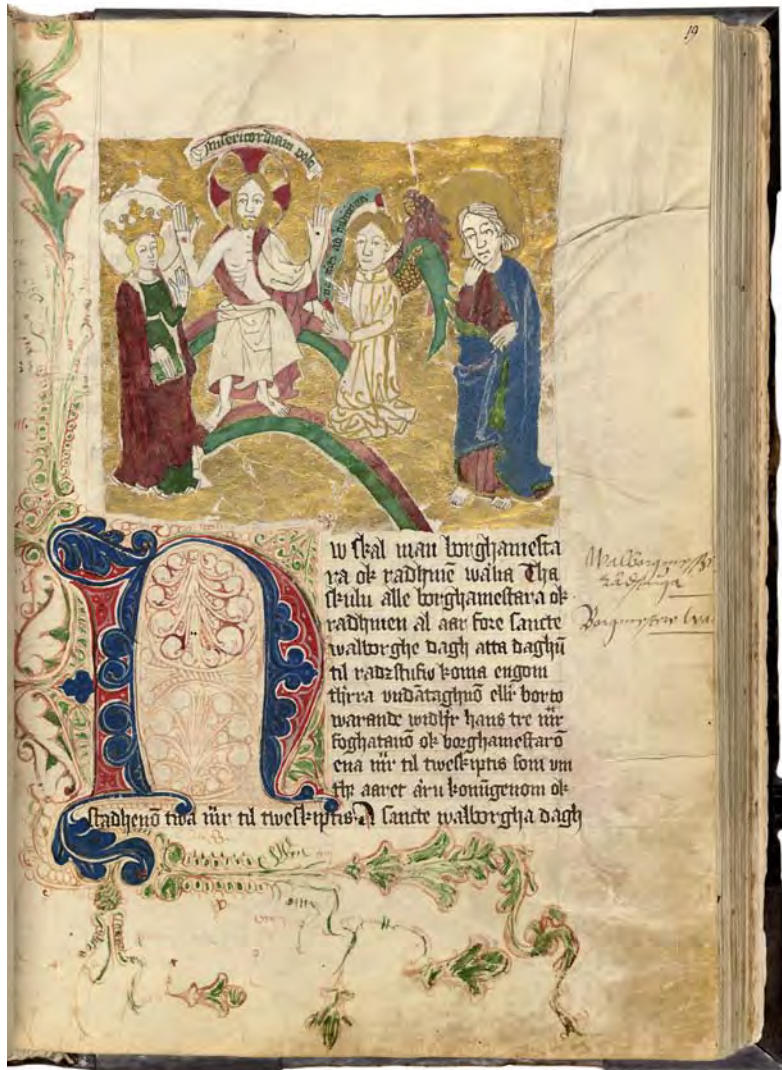 19
Misericordiam volo
w skal man borghamesta
ra ok radhmē wälia Tha
skulu alle borghamestara ok
radhmen al aar fore sancte
walborghe dagh atta daghū
til radzstufw koma engom
thera vndātaghnō ellr borto
warande widhr hans tre mr̄
foghatanō ok borghamestarō
ena mr̄ til tweskiptis som vm
thz aaret äru konūgenom ok
stadhenō twa mr̄ til tweskiptis A sancte walborgha dagh